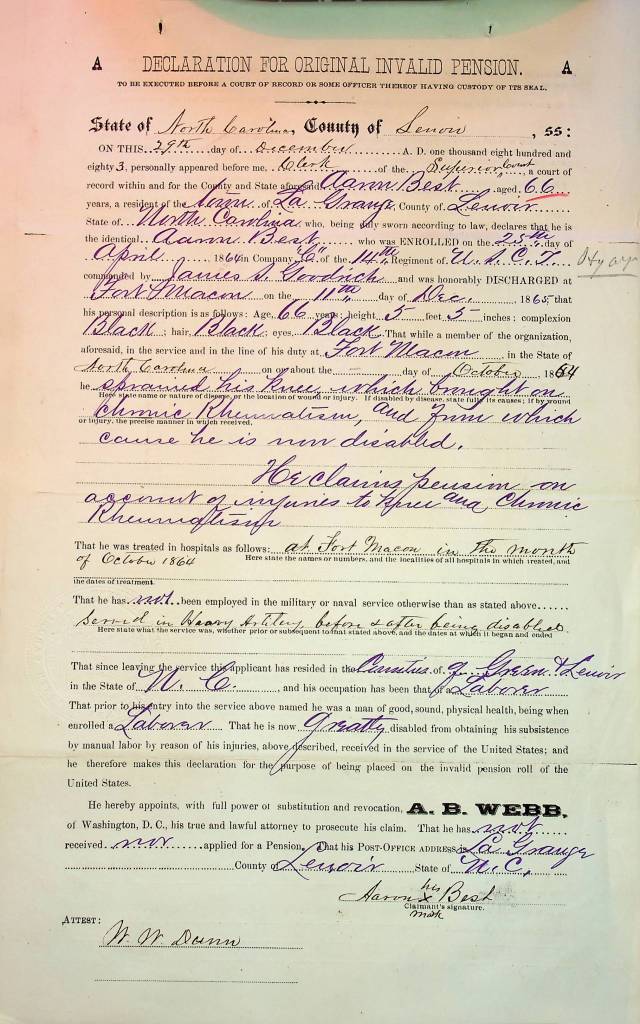 A DECLARATION FOR ORIGINAL INVALID PENSION. A
TO BE EXECUTED BEFORE A COURT OF RECORD OR SOME OFFICER THEREOF HAVING CUSTODY OF ITS SEAL.
State of North Carolina, County of Lenoir, SS:
ON THIS 29th day of December A. D. one thousand eight hundred and
eighty 3, personally appeared before me Clerk of the Superior Court, a court of
record within and for the County and State aforesaid Aaron Best aged 66
years, a resident of the Town of La Grange, County of Lenoir
State of North Carolina who, being duly sworn according to law, declares that he is
the identical Aaron Best who was ENROLLED on the 25th day of
April 1864 in Company "C" of the 14th Regiment of U. S. C. T.
commanded by James S. Goodrich and was honorably DISCHARGED at
Fort Macon on the 11th day of Dec. 1865, that
his personal description is as follows: Age, 66 years; height, 5 feet 5 inches; complexion
Black; hair, Black; eyes, Black. That while a member of the organization,
aforesaid, in the service and in the line of his duty at Fort Macon in the State of
North Carolina on or about the — day of October 1864
he sprained his knee, which brought on
Here state name or nature of disease, or the location of wound or injury. If disabled by disease, state fully its causes; if by wound
chronic Rheumatism, and from which
or injury, the precise manner in which received.
cause he is now disabled.
He claims pension on
account of injuries to knee and Chronic
Rheumatism
That he was treated in hospitals as follows: at Fort Macon in the month
of October 1864 Here state the names or numbers, and the localities of all hospitals in which treated, and
the dates of treatment.
That he has not been employed in the military or naval service otherwise than as stated above
Served in Heavy Artilery before & after being disabled.
Here state what the service was, whether prior or subsequent to that stated above, and the dates at which it began and ended
That since leaving the service this applicant has resided in the Counties of Green & Lenoir
in the State of N. C. , and his occupation has been that of a Laborer
That prior to his entry into the service above named he was a man of good, sound, physical health, being when
enrolled a Laborer That he is now Greatly disabled from obtaining his subsistence
by manual labor by reason of his injuries, above described, received in the service of the United States; and
he therefore makes this declaration for the purpose of being placed on the invalid pension roll of the
United States.
He hereby appoints, with full power of substitution and revocation, A. B. WEBB,
of Washington, D. C., his true and lawful attorney to prosecute his claim. That he has not
received nor applied for a Pension. That his POST-OFFICE ADDRESS is La Grange
County of Lenoir State of N. C.
his
Aaron x Best
Claimant's signature.
mark
ATTEST:
W. W. Dunn